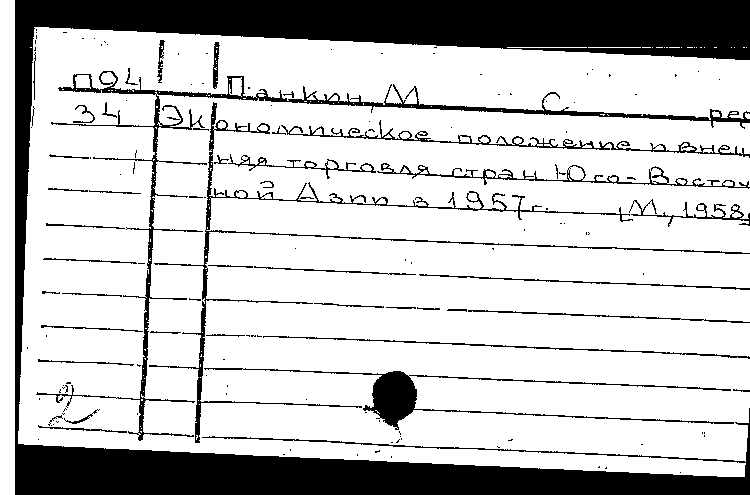 П94 Панкин, М С ред
34 Экономическое положение и внеш
няя торговля стран Юго-Восточ
ной Азии в 1957г. [М., 1958,
2